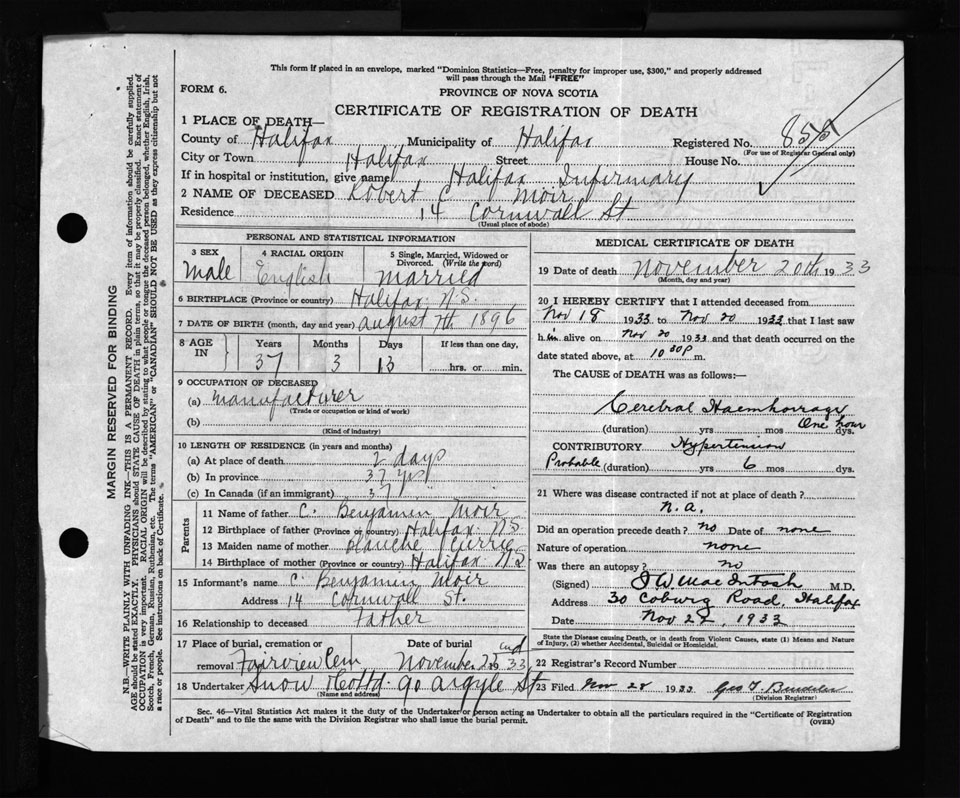 This form if placed in an envelope, marked "Dominion Statistics—Free, penalty for improper use, $300," and properly addressed
will pass through the Mail "FREE"
FORM 6.
PROVINCE OF NOVA SCOTIA
CERTIFICATE OF REGISTRATION OF DEATH
1 PLACE OF DEATH—
County of Halifax Municipality of Halifax Registered No.
(For use of Registrar General only)
City or Town Halifax Street House No.
If in hospital or institution, give name Halifax Infirmary
2 NAME OF DECEASED Robert C Moir
Residence 14 Cornwall St
(Usual place of abode)
PERSONAL AND STATISTICAL INFORMATION
3 SEX Male
4 RACIAL ORIGIN English
5 Single, Married, Widowed or Divorced. (Write the word) married
6 BIRTHPLACE (Province or country) Halifax N.S.
7 DATE OF BIRTH (month, day and year) August 7th 1896
8 AGE IN Years Months Days If less than one day,
37 3 13 hrs. or min.
9 OCCUPATION OF DECEASED
(a) manufacturer
(Trade or occupation or kind of work)
(b)
(Kind of industry)
10 LENGTH OF RESIDENCE (in years and months)
(a) At place of death 2 days
(b) In province 37 yrs
(c) In Canada (if an immigrant) 37
Parents
11 Name of father C. Benjamin Moir
12 Birthplace of father (Province or country) Halifax N.S
13 Maiden name of mother Blanche
14 Birthplace of mother (Province or country) Halifax N S
15 Informant's name C Benjamin Moir
Address 14 Cornwall St.
16 Relationship to deceased Father
17 Place of burial, cremation or Date of burial
removal Fairview Cem November 22nd 1933
18 Undertaker Snow & Co Ltd 90 Argyle St
(Name and address)
MEDICAL CERTIFICATE OF DEATH
19 Date of death November 20th 1933
(Month, day and year)
20 I HEREBY CERTIFY that I attended deceased from
Nov 18 1933 to Nov 20 1933 that I last saw
h im alive on Nov 20 1933 and that death occurred on the
date stated above, at 10 30 P m.
The CAUSE of DEATH was as follows:—
Cerebral Haemhorrage
(duration) yrs mos One hour dys.
CONTRIBUTORY Hypertension
Probable (duration) yrs 6 mos dys.
21 Where was disease contracted if not at place of death?
n.a.
Did an operation precede death? no Date of none
Nature of operation none
Was there an autopsy? no
(Signed) J W MacIntosh M.D.
Address 30 Coburg Road, Halifax
Date Nov 22, 1933
State the Disease causing Death, or in death from Violent Causes, state (1) Means and Nature
of Injury, (2) whether Accidental, Suicidal or Homicidal.
22 Registrar's Record Number
23 Filed Nov 28 1933
(Division Registrar)
Sec. 46—Vital Statistics Act makes it the duty of the Undertaker or person acting as Undertaker to obtain all the particulars required in the "Certificate of Registration
of Death" and to file the same with the Division Registrar who shall issue the burial permit.
(OVER)
MARGIN RESERVED FOR BINDING
N.B.—WRITE PLAINLY WITH UNFADING INK—THIS IS A PERMANENT RECORD. Every item of information should be carefully supplied.
AGE should be stated EXACTLY. PHYSICIANS should STATE CAUSE OF DEATH in plain terms, so that it may be properly classified. Exact statement of
OCCUPATION is very important. RACIAL ORIGIN will be described by stating to what people or tongue the deceased person belonged, whether English, Irish,
Scotch, French, German, Russian, Ruthenian, etc. The terms "AMERICAN" or "CANADIAN" SHOULD NOT BE USED as they express citizenship but not
a race or people. See instructions on back of Certificate.